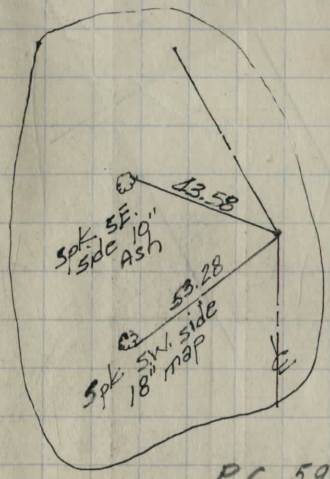 43.58
Spk. S.E.
side 10"
Ash
53.28
Spk. S.W. side
18" map
℄
P.C. 59